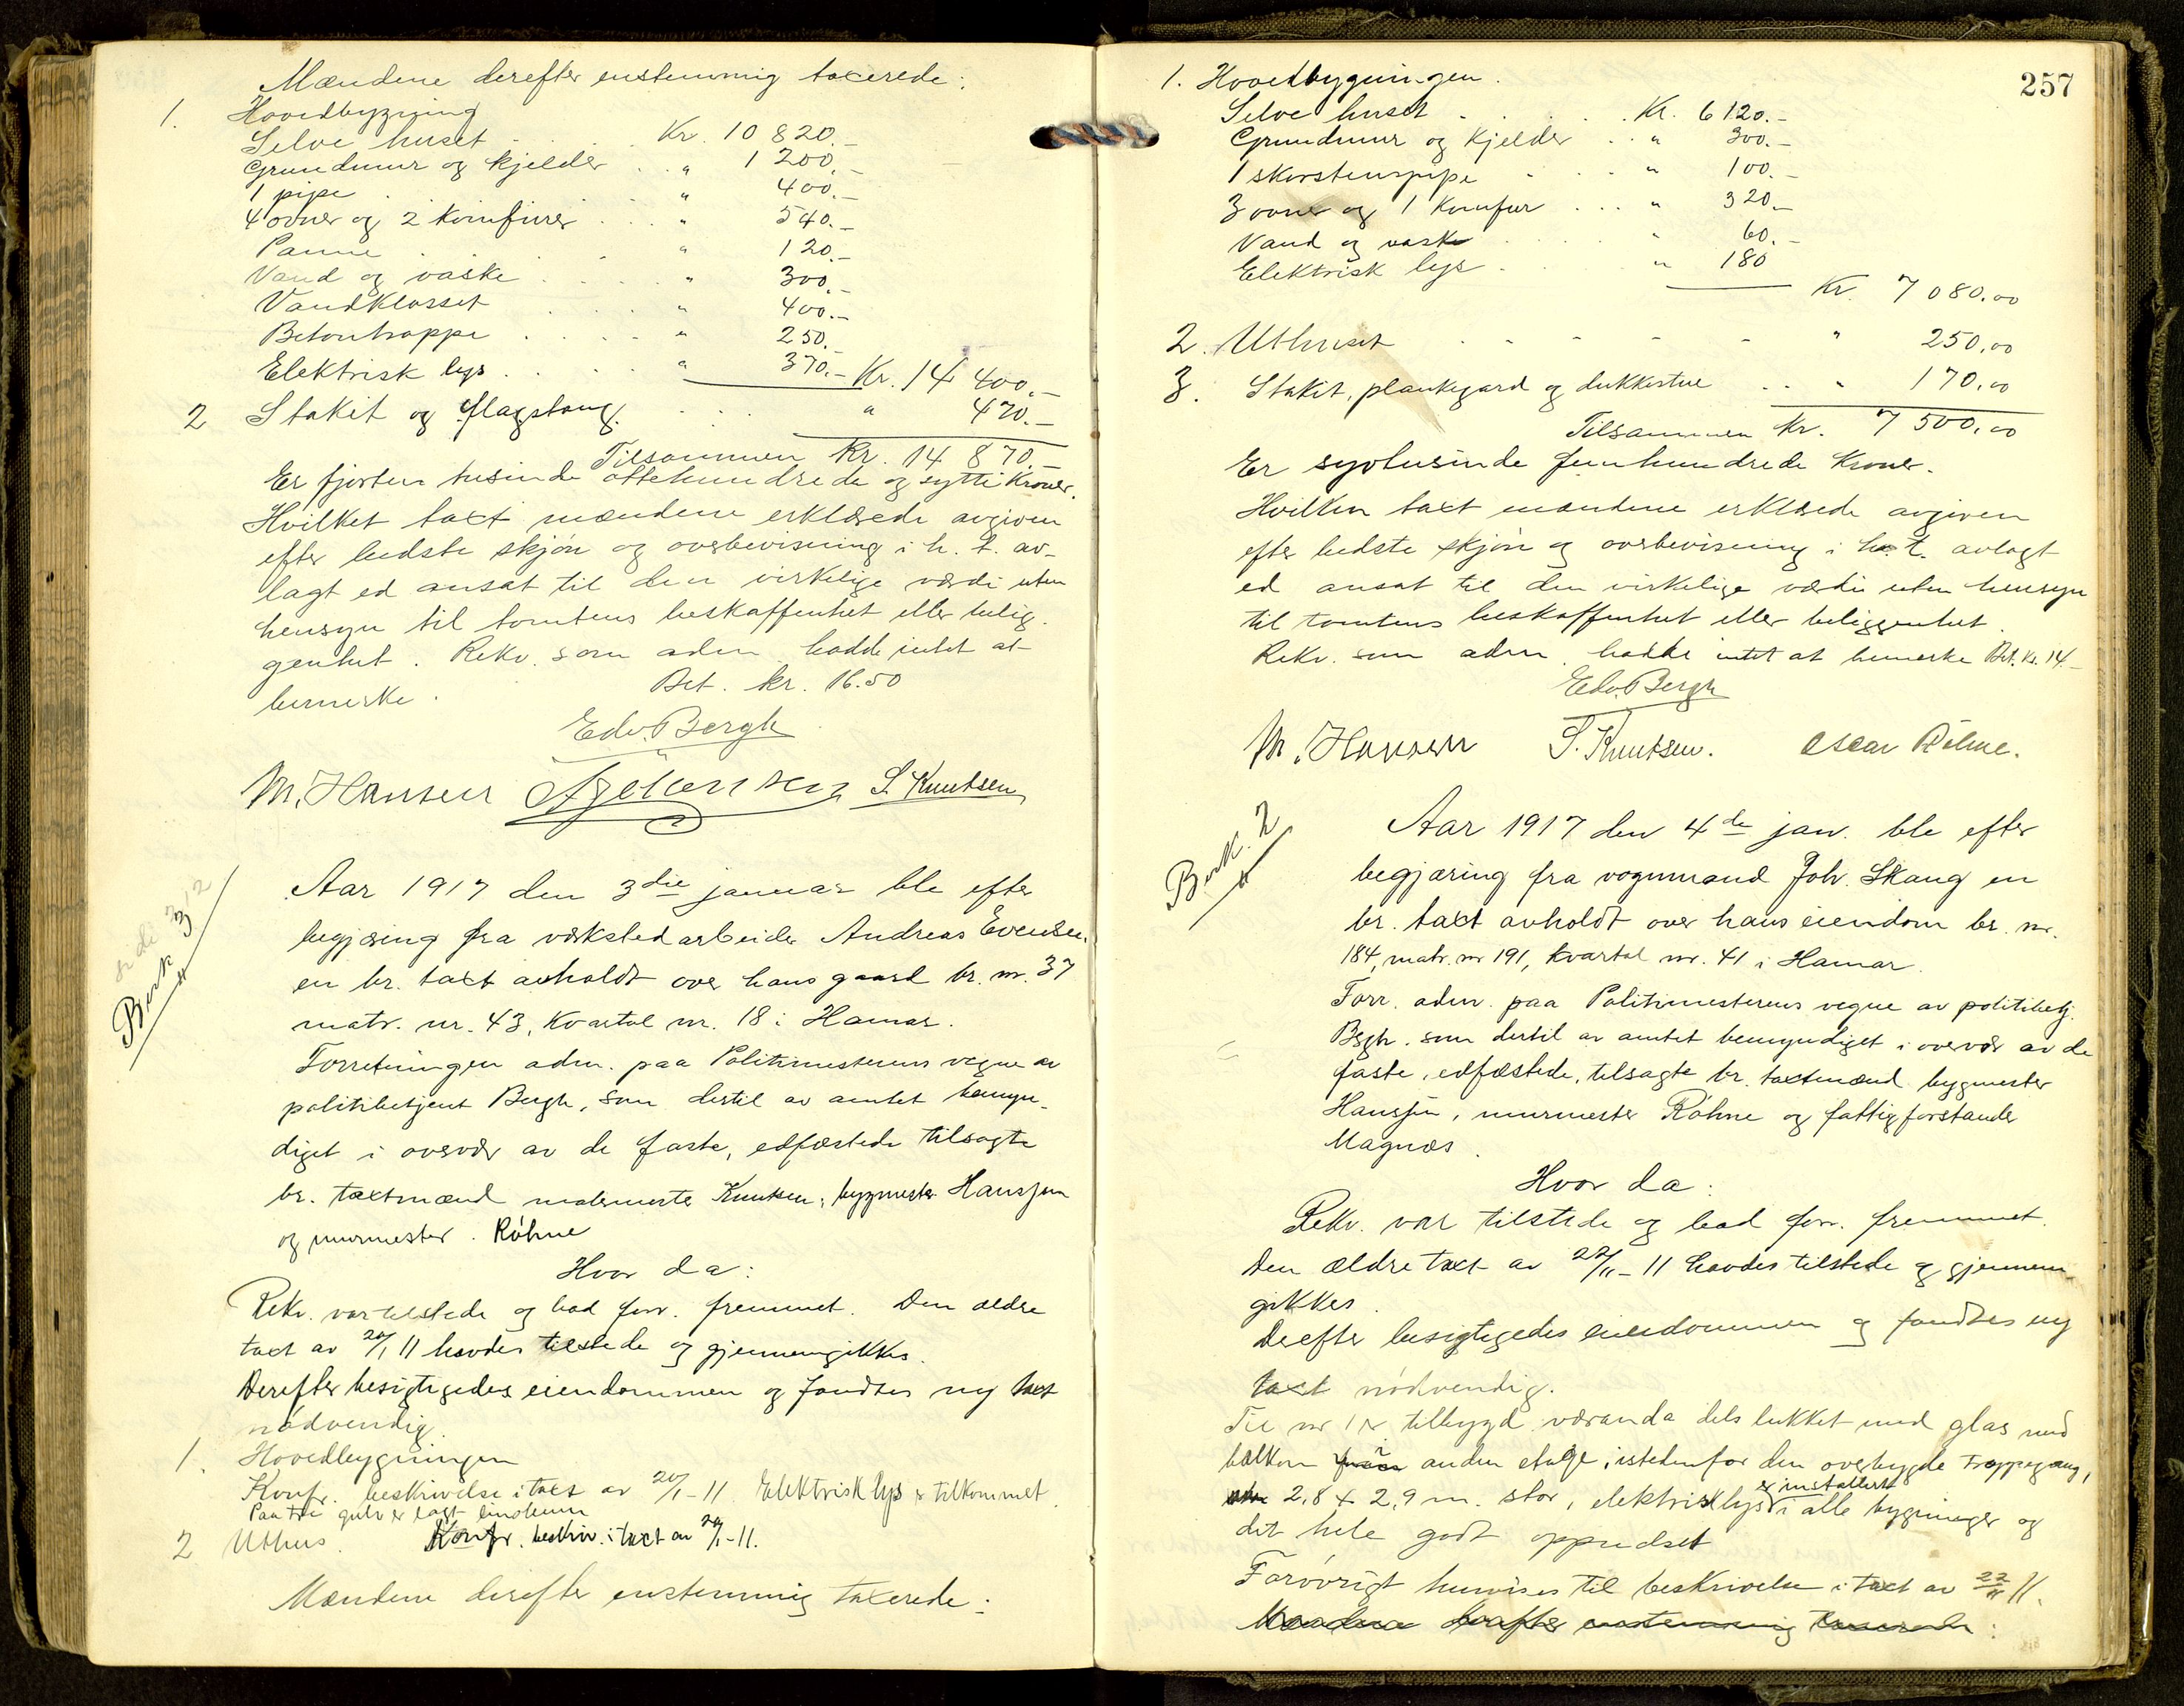 Mændene derefter enstemmig taxerede:
1. Hovedbygning
Selve huset . . . Kr. 10 820.-
Grundmur og kjelder . . " 1 200.-
1 pipe . " 400.-
4 ovner og 2 komfurer . . " 540.-
Panne . . . " 120.-
Vand og vaske . . . . " 300.-
Vandklosset . . . " 400.-
Betontrappe . . . . " 250.-
Elektrisk lys . . . . " 370.- Kr. 14 400.-
2 Stakit og flagstang. . . . " 470.-
Tilsammen Kr. 14 870.-
Er fjorten tusinde ottehundrede og sytti Kroner.
Hvilket taxt mændene erklærede avgiven
efter bedste skjøn og overbevisning i h. t. av-
lagt ed ansat til den virkelige værdi uten
hensyn til tomtens beskaffenhet eller belig-
genhet. Rekv. som adm. hadde intet at
bemerke. Bet. kr. 16.50
Edv. Bergh
M. Hansen S. Knutsen
Aar 1917 den 3die januar ble efter
begjæring fra verkstedarbeider Andreas Evensen
en br. taxt avholdt over hans gaard br. nr. 37
matr. nr. 43, Kvartal nr. 18 i Hamar.
Forretningen adm. paa Politimesterens vegne av
politibetjent Bergh, som dertil av amtet bemyn-
diget i overvær av de faste, edfæstede tilsagte
br. taxtmænd malermester Knutsen, bygmester Hansen
og murmester. Röhne
Hvor da:
Rekv. var tilstede og bad forr. fremmet. Den ældre
taxt av 20/1 11 havdes tilstede og gjennemgikkes.
Derefter besigtigedes eiendommen og fandtes ny taxt
nødvendig.
1. Hovedbygningen
Konfr. beskrivelse i taxt av 20/1-11 Elektrisk lys er tilkommet.
Paa tre gulv er lagt linoleum
2 Uthus. Konfr. beskriv. i taxt av 20/1-11.
Mændene derefter enstemmig taxerede:
257
1. Hovedbygningen.
Selve huset . . . . . Kr. 6 120.-
Grundmur og Kjelder . . " 300.-
1 skorstenspipe . . . " 100.-
3 ovner og 1 Komfur . . . " 320.-
Vand og vask . . . . " 60.-
Elektrisk lys . . . . " 180
Kr. 7 080.00
2. Uthuset - - - - - " 250.00
3. Stakit, plankegard og dukkestue . . " 170.00
Tilsammen Kr. 7 500.00
Er syvtusinde femhundrede Kroner.
Hvilken taxt mændene erklærede avgiven
efter bedste skjøn og overbevisning i h. t. avlagt
ed ansat til den virkelige værdi uten hensyn
til tomtens beskaffenhet eller beliggenhet.
Rekv. som adm. hadde intet at bemerke Bet. Kr. 14.-
Edv. Bergh
M. Hansen S. Knutsen. Oscar Röhne.
Berk. 2
Aar 1917 den 4de jan. ble efter
begjæring fra vognmand Joh. Skaug en
br. taxt avholdt over hans eiendom br. nr.
184, matr. nr 191, Kvartal nr. 41 i Hamar.
Forr. adm. paa Politimesterens vegne av politibetj.
Bergh. som dertil av amtet bemyndiget i overvær av de
faste, edfæstede, tilsagte br. taxtmænd bygmester
Hansen, murmester Röhne og fattigforstander
Magnæs.
Hvor da:
Rekv. var tilstede og bad forr. fremmet.
Den ældre taxt av 22/11-11 havdes tilstede og gjennem-
gikkes.
Derefter besigtigedes eiendommen og fandtes ny
taxt nødvendig.
Til nr 1 er tilbygd væranda dels lukket med glas med
balkon i anden etage, istedenfor den overbygde trappegang,
2,8 x 2,9 m. stor, elektrisk lys er installert i alle bygninger og
det hele godt oppudset
Forøvrigt henvises til beskrivelse i taxt av 22/11 11.
Mændene derefter enstemmig taxerede: